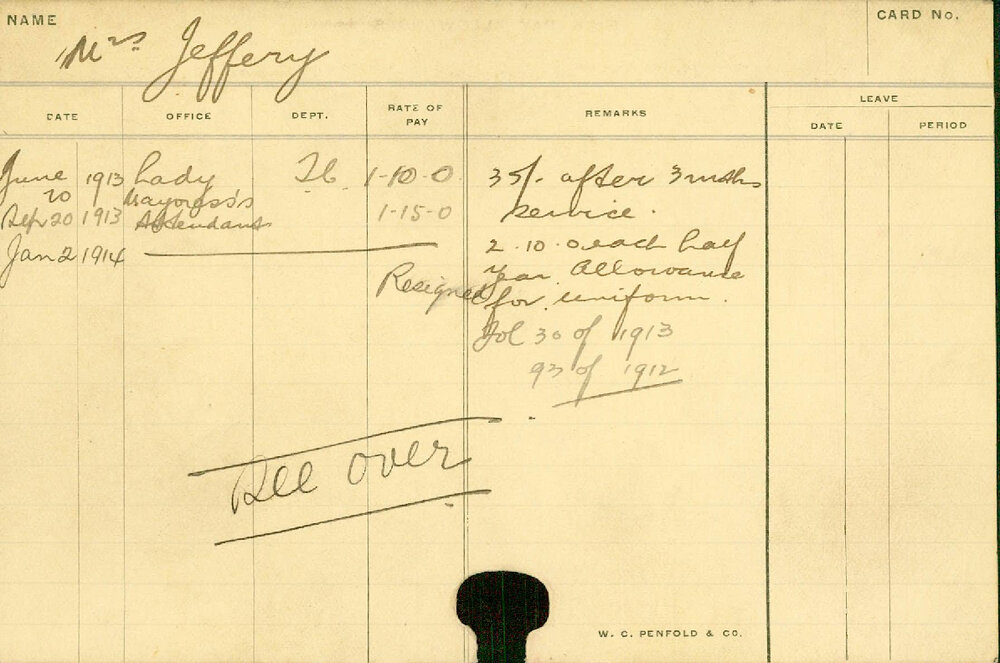 NAME
CARD No.
Mrs Jeffery
DATE OFFICE DEPT. RATE OF PAY REMARKS LEAVE
DATE PERIOD
June 1913 Lady 1-10-0 35/- after 3 mths
20 Mayoress's service.
Sep 20 1913 Attendant 1-15-0
2.10.0 each half
Jan 2 1914
year Allowance
Resigned for uniform.
Fol 30 of 1913
93 of 1912
See over
W. C. PENFOLD & CO.